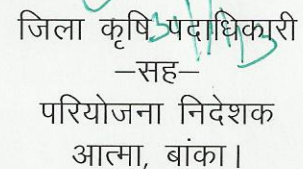 जिला कृषि पदाधिकारी
–सह–
परियोजना निदेशक
आत्मा, बांका।